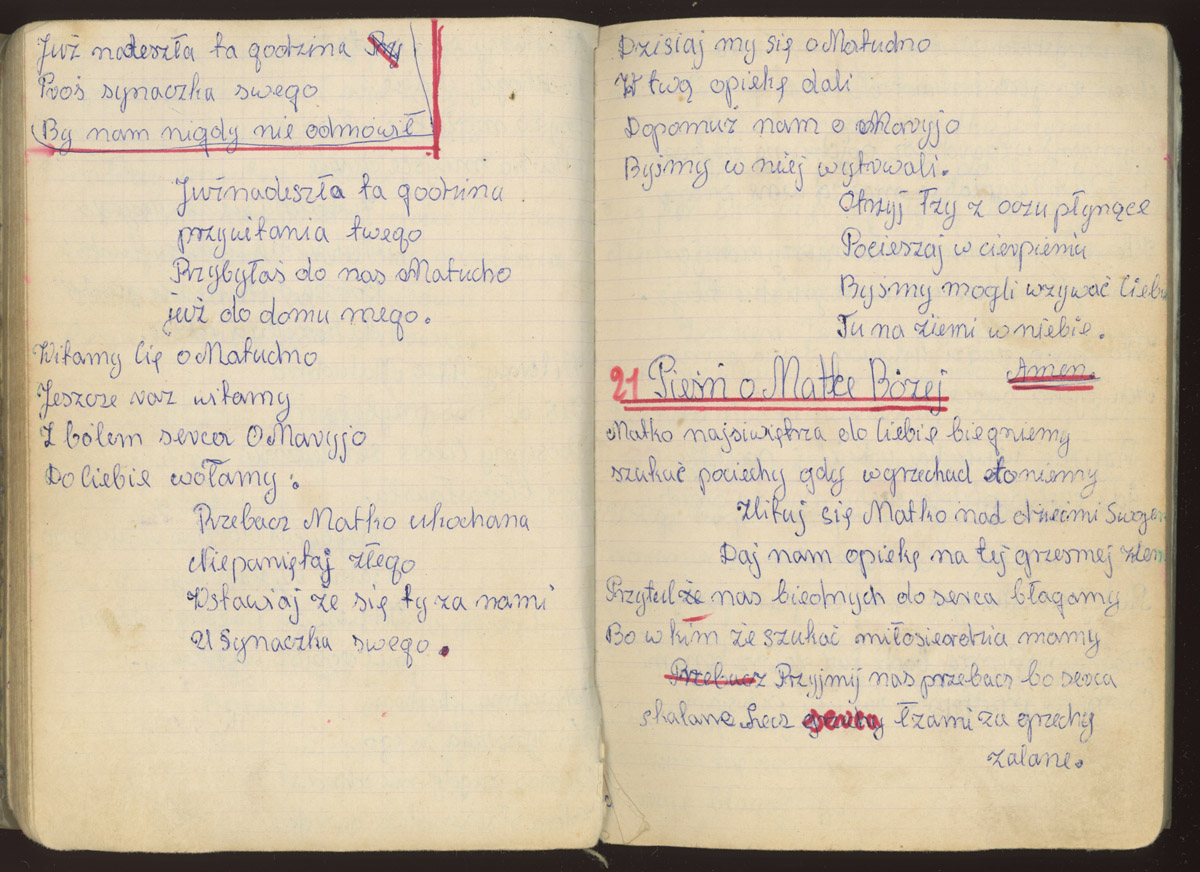 Już nadeszła ta godzina
Proś synaczka swego
By nam nigdy nie odmówił
Jużnadeszła ta godzina
przywitania twego
Przybyłaś do nas Matucho
już do domu mego.
Witamy Cię o Matudno
Jeszcze raz witamy
Z bólem serca O Maryjo
Do Ciebie wołamy:
Przebacz Matko ukochana
Niepamiętaj złego
Wstawiaj że się ty za nami
U Synaczka swego.
Dzisiaj my się o Matudno
W twą opiekę dali
Dopomuż nam o Maryjo
Byśmy w niej wytrwali.
Otrzyj łzy z oczu płynące
Pocieszaj w cierpieniu
Byśmy mogli wzywać Ciebie
Tu na ziemi w niebie.
Amen.
21 Pieśń o Matce Bożej
Matko najświętrza do Ciebie biegniemy
szukać pociechy gdy wgrzechad toniemy
Zlituj się Matko nad dziećmi Swgem
Daj nam opiekę na tej grzesnej ziem
Przytul że nas biednych do serca błagamy
Bo w kim że szukać miłosierdzia mamy
Przebacz Przyjmij nas przebacz bo serca
skalane Lecz łzami za grzechy
zalane.